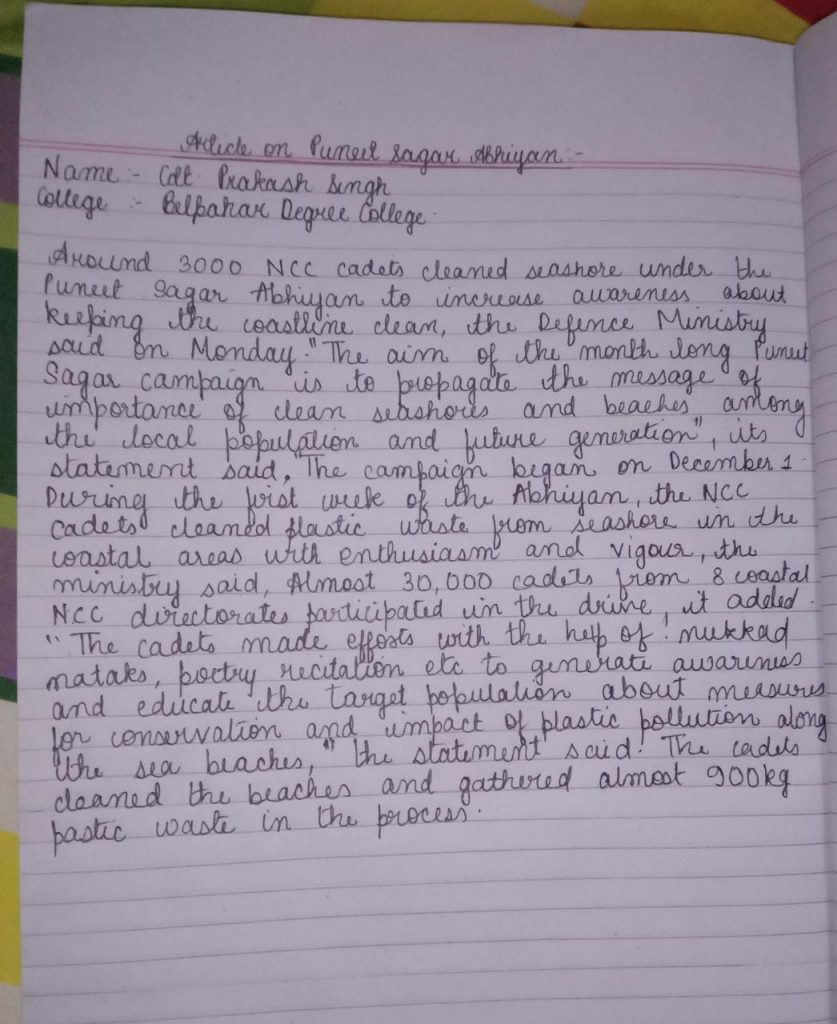 Article on Puneet Sagar Abhiyan :-
Name :- Cdt Prakash Singh
College :- Belpahar Degree College.
Around 3000 NCC cadets cleaned seashore under the
Puneet Sagar Abhiyan to increase awareness about
keeping the coastline clean, the Defence Ministry
said on Monday. "The aim of the month long Puneet
Sagar campaign is to propagate the message of
importance of clean seashores and beaches among
the local population and future generation", its
statement said, The campaign began on December 1.
During the first week of the Abhiyan, the NCC
cadets cleaned plastic waste from seashore in the
coastal areas with enthusiasm and vigour, the
ministry said, Almost 30,000 cadets from 8 coastal
NCC directorates participated in the drive, it added.
" The cadets made efforts with the help of ' nukkad
mataks, poetry recitation etc to generate awareness
and educate the target population about measures
for conservation and impact of plastic pollution along
the sea beaches, " the statement said. The cadets
cleaned the beaches and gathered almost 900kg
pastic waste in the process.